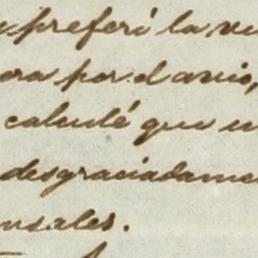 preferí la
por davio,
calculé que en
desgraciadame
nsales.